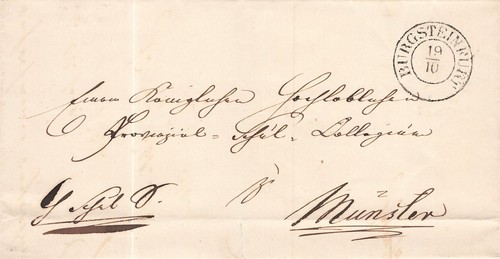 BURGSTEINFURT
19/10
Einem Königlichen Hochlöblichen
Provinzial = Schul = Collegium
Schul S.
Münster